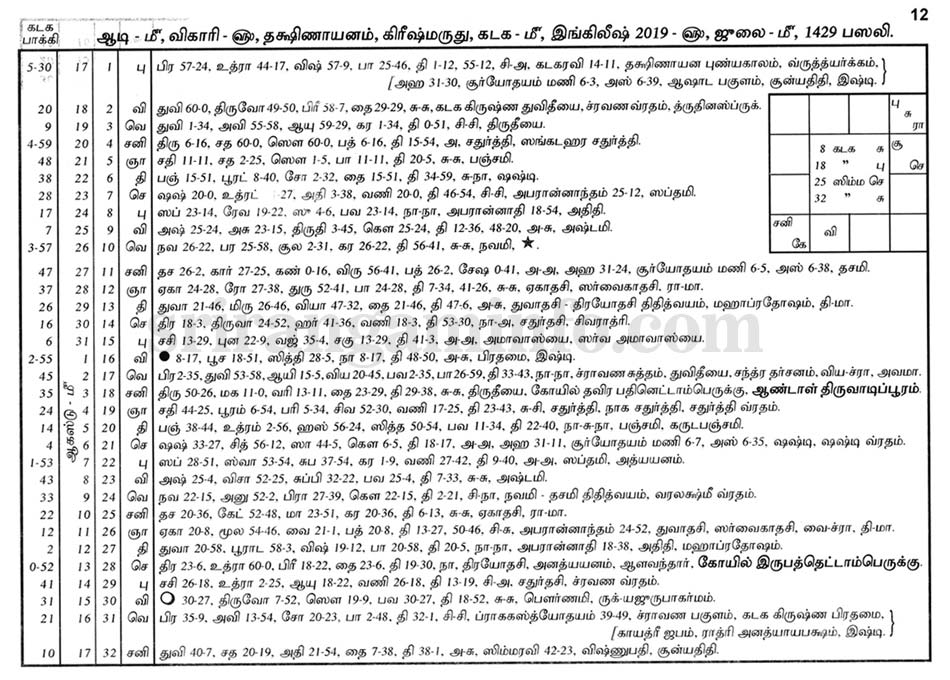 12
கடக
பாக்கி
ஆடி - மீ, விகாரி - ௵, தக்ஷிணாயனம், கிரீஷ்மருது, கடக - மீ, இங்கிலீஷ் 2019 - ௵, ஜுலை - மீ, 1429 பஸலி.
5-30 17 1 பு பிர 57-24, உத்ரா 44-17, விஷ் 57-9, பா 25-46, தி 1-12, 55-12, சி-அ, கடகரவி 14-11, தக்ஷிணாயன புண்யகாலம், வ்ருத்த்யர்க்கம்,
[அஹ 31-30, சூர்யோதயம் மணி 6-3, அஸ் 6-39, ஆஷாட பகுளம், சூன்யதிதி, இஷ்டி.
20 18 2 வி துவி 60-0, திருவோ 49-50, பிரீ 58-7, தை 29-29, சு-சு, கடக கிருஷ்ண துவிதீயை, ச்ரவணவ்ரதம், த்ருதினஸ்ப்ருக்.
9 19 3 வெ துவி 1-34, அவி 55-58, ஆயு 59-29, கர 1-34, தி 0-51, சி-சி, திருதீயை.
4-59 20 4 சனி திரு 6-16, சத 60-0, ஸௌ 60-0, பத் 6-16, தி 15-54, அ. சதுர்த்தி, ஸங்கடஹர சதுர்த்தி.
48 21 5 ஞா சதி 11-11, சத 2-25, ஸௌ 1-5, பா 11-11, தி 20-5, சு-சு, பஞ்சமி.
38 22 6 தி பஞ் 15-51, பூரட் 8-40, சோ 2-32, தை 15-51, தி 34-59, சு-நா, ஷஷ்டி.
28 23 7 செ ஷஷ் 20-0, உத்ரட் -27, அதி 3-38, வணி 20-0, தி 46-54, சி-சி, அபரான்னாந்தம் 25-12, ஸப்தமி.
17 24 8 பு ஸப் 23-14, ரேவ 19-22, ஸு 4-6, பவ 23-14, நா-நா, அபரான்னாதி 18-54, அதிதி.
7 25 9 வி அஷ் 25-24, அசு 23-15, திருதி 3-45, கௌ 25-24, தி 12-36, 48-20, அ-சு, அஷ்டமி.
3-57 26 10 வெ நவ 26-22, பர 25-58, சூல 2-31, கர 26-22, தி 56-41, சு-சு, நவமி, ★.
பு
சு
ரா
8 கடக சு
18 ” பு
25 ஸிம்ம செ
32 ” சு
சூ
செ
சனி
கே
வி
47 27 11 சனி தச 26-2, கார் 27-25, கண் 0-16, விரு 56-41, பத் 26-2, சேஷ 0-41, அ-அ, அஹ 31-24, சூர்யோதயம் மணி 6-5, அஸ் 6-38, தசமி.
37 28 12 ஞா ஏகா 24-28, ரோ 27-38, துரு 52-41, பா 24-28, தி 7-34, 41-26, சு-சு, ஏகாதசி, ஸர்வைகாதசி, ரா-மா.
26 29 13 தி துவா 21-46, மிரு 26-46, வியா 47-32, தை 21-46, தி 47-6, அ-சு, துவாதசி - திரயோதசி திதித்வயம், மஹாப்ரதோஷம், தி-மா.
16 30 14 செ திர 18-3, திருவா 24-52, ஹர் 41-36, வணி 18-3, தி 53-30, நா-அ, சதுர்தசி, சிவராத்ரி.
6 31 15 பு சசி 13-29, புன 22-9, வஜ் 35-4, சகு 13-29, தி 41-3, அ-அ, அமாவாஸ்யை, ஸர்வ அமாவாஸ்யை.
2-55 1 16 வி ● 8-17, பூச 18-51, ஸித்தி 28-5, நா 8-17, தி 48-50, அ-சு, பிரதமை, இஷ்டி.
45 2 17 வெ பிர 2-35, துவி 53-58, ஆயி 15-5, விய 20-45, பவ 2-35, பா 26-59, தி 33-43, நா-நா, ச்ராவணசுத்தம், துவிதீயை, சந்த்ர தர்சனம், விய-ச்ரா, அவமா.
ஆகஸ்டு - மீ
35 3 18 சனி திரு 50-26, மக 11-0, வரி 13-11, தை 23-29, தி 29-38, சு-சு, திருதீயை, கோயில் தவிர பதினெட்டாம்பெருக்கு, ஆண்டாள் திருவாடிப்பூரம்.
24 4 19 ஞா சதி 44-25, பூரம் 6-54, பரி 5-34, சிவ 52-30, வணி 17-25, தி 23-43, சு-சி, சதுர்த்தி, நாக சதுர்த்தி, சதுர்த்தி வ்ரதம்.
14 5 20 தி பஞ் 38-44, உத்ரம் 2-56, ஹஸ் 56-24, ஸித்த 50-54, பவ 11-34, தி 22-40, நா-சு-நா, பஞ்சமி, கருடபஞ்சமி.
4 6 21 செ ஷஷ் 33-27, சித் 56-12, ஸா 44-5, கௌ 6-5, தி 18-17, அ-அ, அஹ 31-11, சூர்யோதயம் மணி 6-7, அஸ் 6-35, ஷஷ்டி, ஷஷ்டி வ்ரதம்.
1-53 7 22 பு ஸப் 28-51, ஸ்வா 53-54, சுப 37-54, கர 1-9, வணி 27-42, தி 9-40, அ-அ, ஸப்தமி, அத்யயனம்.
43 8 23 வி அஷ் 25-4, விசா 52-25, சுப்பி 32-22, பவ 25-4, தி 7-33, சு-சு, அஷ்டமி.
33 9 24 வெ நவ 22-15, அனு 52-2, பிரா 27-39, கௌ 22-15, தி 2-21, சி-நா, நவமி - தசமி திதித்வயம், வரலக்ஷ்மீ வ்ரதம்.
22 10 25 சனி தச 20-36, கேட் 52-48, மா 23-51, கர 20-36, தி 6-13, சு-சு, ஏகாதசி, ரா-மா.
12 11 26 ஞா ஏகா 20-8, மூல 54-46, வை 21-1, பத் 20-8, தி 13-27, 50-46, சி-சு, அபரான்னாந்தம் 24-52, துவாதசி, ஸர்வைகாதசி, வை-ச்ரா, தி-மா.
2 12 27 தி துவா 20-58, பூராட 58-3, விஷ் 19-12, பா 20-58, தி 20-5, நா-நா, அபரான்னாதி 18-38, அதிதி, மஹாப்ரதோஷம்.
0-52 13 28 செ திர 23-6, உத்ரா 60-0, பிரீ 18-22, தை 23-6, தி 19-30, நா, திரயோதசி, அனத்யயனம், ஆளவந்தார், கோயில் இருபத்தெட்டாம்பெருக்கு.
41 14 29 பு சசி 26-18, உத்ரா 2-25, ஆயு 18-22, வணி 26-18, தி 13-19, சி-அ, சதுர்தசி, ச்ரவண வ்ரதம்.
31 15 30 வி ○ 30-27, திருவோ 7-52, ஸௌ 19-9, பவ 30-27, தி 18-52, சு-சு, பௌர்ணமி, ருக்-யஜுருபாகர்மம்.
21 16 31 வெ பிர 35-9, அவி 13-54, சோ 20-23, பா 2-48, தி 32-1, சி-சி, ப்ராககஸ்த்யோதயம் 39-49, ச்ராவண பகுளம், கடக கிருஷ்ண பிரதமை,
[காயத்ரீ ஜபம், ராத்ரி அனத்யாயபக்ஷம், இஷ்டி.
10 17 32 சனி துவி 40-7, சத 20-19, அதி 21-54, தை 7-38, தி 38-1, அ-சு, ஸிம்மரவி 42-23, விஷ்ணுபதி, சூன்யதிதி.
srirangaminfo.com